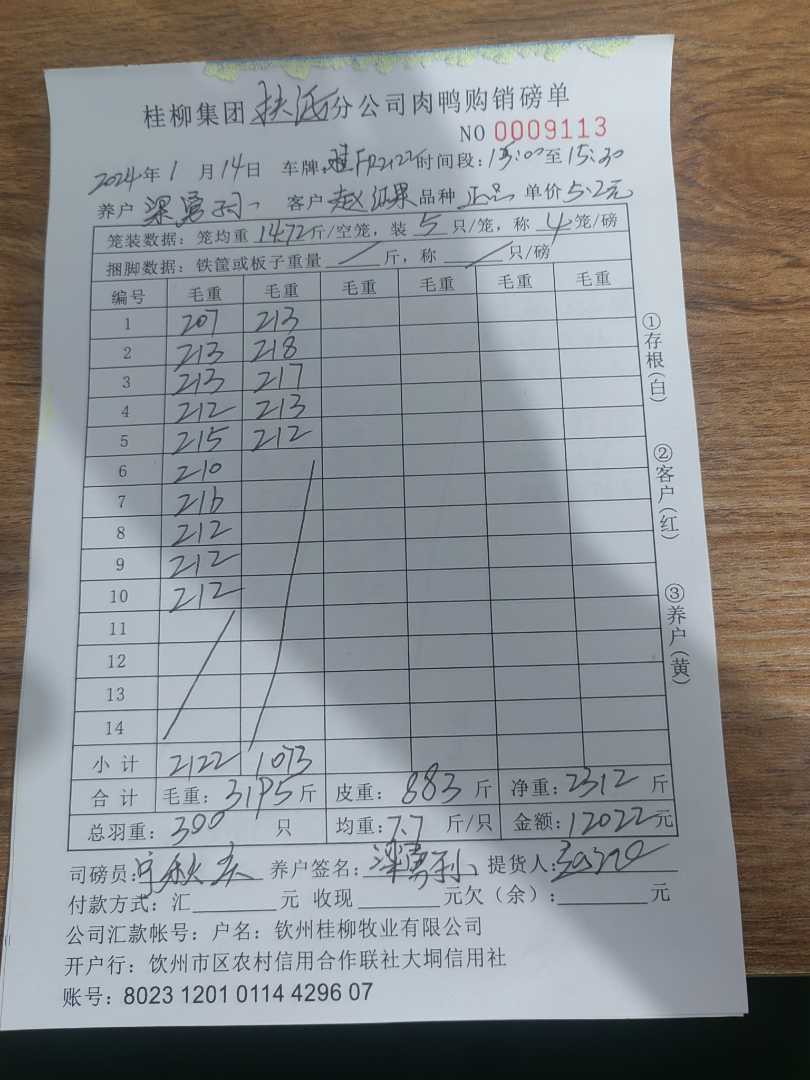 桂柳集团 扶绥 分公司肉鸭购销磅单
NO 0009113
2024年1月14日 车牌: 时间段:15:00至15:30
养户 梁勇 客户 赵红果 品种 正品 单价 5.2元
笼装数据: 笼均重 14.72 斤/空笼, 装 5 只/笼, 称 4 笼/磅
捆脚数据: 铁筐或板子重量 / 斤, 称 / 只/磅
编号 毛重 毛重 毛重 毛重 毛重 毛重
1 207 213
2 213 218
3 213 217
4 212 213
5 215 212
6 210
7 216
8 212
9 212
10 212
11
12
13
14
小计 2122 1073
合计 毛重: 3195 斤 皮重: 883 斤 净重: 2312 斤
总羽重: 300 只 均重: 7.7 斤/只 金额: 12022 元
司磅员: 养户签名: 梁勇 提货人:
付款方式: 汇______元 收现______元欠(余):______元
公司汇款帐号: 户名: 钦州桂柳牧业有限公司
开户行: 饮州市区农村信用合作联社大垌信用社
账号: 8023 1201 0114 4296 07
①存根(白)
②客户(红)
③养户(黄)